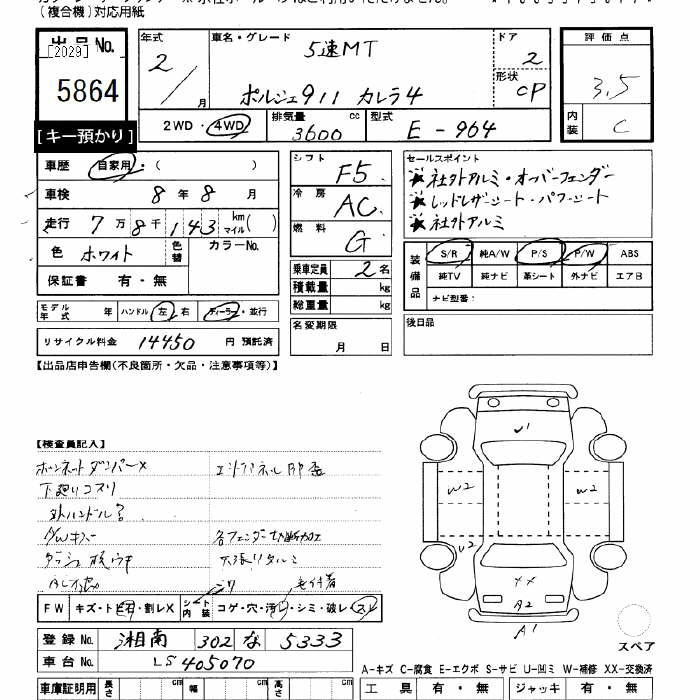 (複合機)対応用紙
出品No.
[2029]
5864
[キー預かり]
年式
2/月
車名・グレード
5速MT
ポルシェ911 カレラ4
ドア
2
形状
CP
評価点
3.5
内装
C
2WD・4WD
排気量
3600 cc
型式
E-964
車歴 自家用・( )
車検 8年8月
走行 7万8千143 km マイル( )
色 ホワイト 色替 カラーNo.
保証書 有・無
モデル年式 年 ハンドル 左 右 ディーラー・並行
リサイクル料金 14450 円 預託済
シフト F5
冷房 AC
燃料 G
乗車定員 2名
積載量 kg
総重量 kg
名変期限
月 日
セールスポイント
★社外アルミ・オーバーフェンダー
★レッドレザーシート・パワーシート
★社外アルミ
装備品
S/R 純A/W P/S P/W ABS
純TV 純ナビ 革シート 外ナビ エアB
ナビ型番:
後日品
【出品店申告欄(不良箇所・欠品・注意事項等)】
【検査員記入】
ボンネットダンパー×
下廻りコスリ
社外ハンドル
天張りタルミ
FW キズ・ト・割レX シート内装 コゲ・穴・汚レ・シミ・破レ・スレ
登録No. 湘南 302 な 5333
車台No. LS405070
車庫証明用 長さ cm 幅 cm 高さ cm
U1
W2
W2
U2
XX
A2
A1
スペア
A-キズ C-腐食 E-エクボ S-サビ U-凹ミ W-補修 XX-交換済
工具 有・無 ジャッキ 有・無